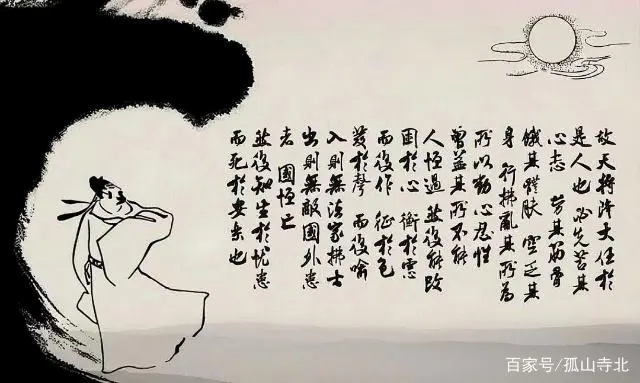 故天将降大任於
是人也 必先苦其
心志 劳其筋骨
饿其體肤 空乏其
身 行拂亂其所为
所以動心忍性
曾益其所不能
人恒過 然後能改
困於心 衡於慮
而後作 征於色
發於聲 而後喻
入則無法家拂士
出則無敵國外患
者 國恒亡
然後知生於忧患
而死於安乐也
百家号/孤山寺北